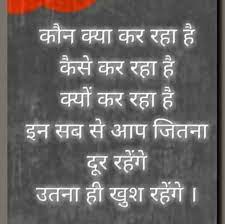 कौन क्या कर रहा है
कैसे कर रहा है
क्यों कर रहा है
इन सब से आप जितना
दूर रहेंगे
उतना ही खुश रहेंगे ।